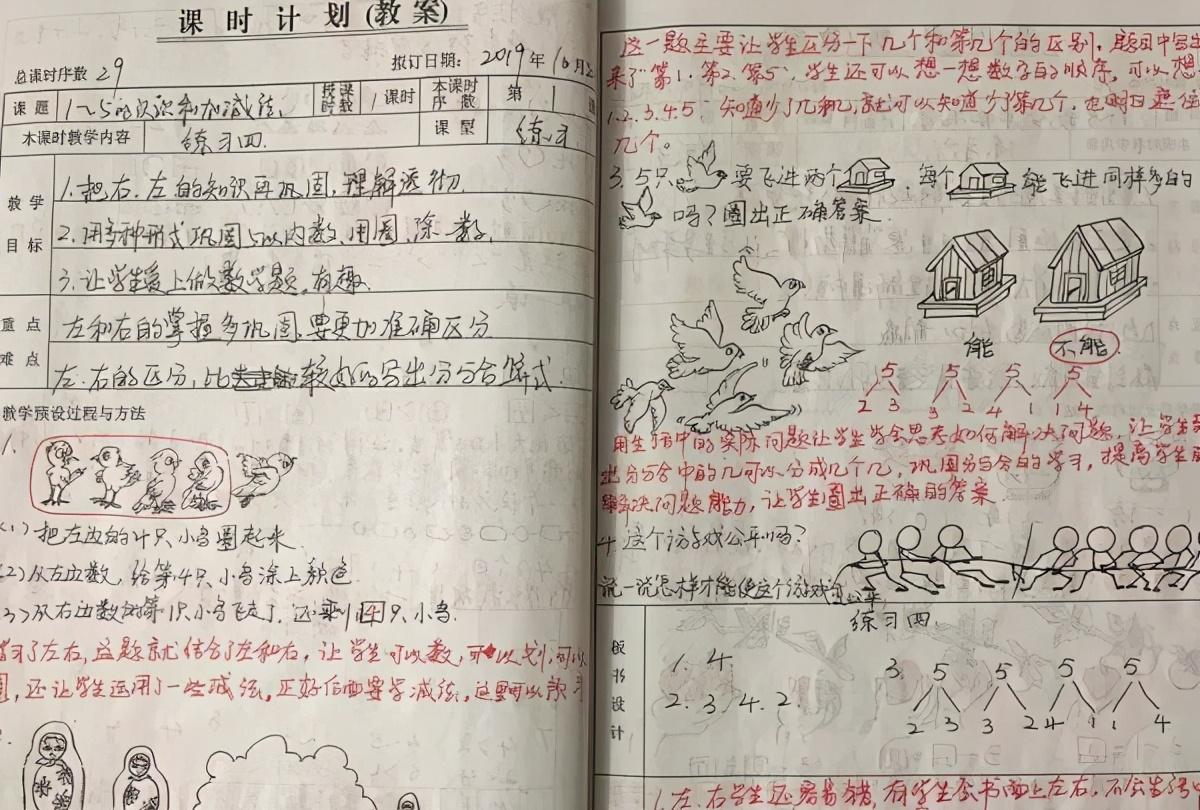 课时计划(教案)
总课时序数 29 拟订日期: 2019年10月
课题 1~5的认识和加减法 授课时数 1课时 本课时序数 第1
本课时教学内容 练习四. 课型 练习
教学目标
1.把右、左的知识再巩固,理解透彻.
2.用多种形式巩固5以内数、用圈、涂、数.
3.让学生爱上做数学题,有趣.
重点 左和右的掌握多巩固,要更加准确区分
难点 左、右的区分,比较好的写出分与合算式.
教学预设过程与方法
1.
(1)把左边的4只小鸟圈起来.
(2)从左边数,给第4只小鸟涂上颜色
(3)从右边数的第1只小鸟飞走了,还剩4只小鸟.
学习了左右,这题就结合了左和右,让学生可以数,可以划,可以
圈,还让学生运用了一些减法,正好后面要学减法,这里可以
这一题主要让学生区分一下几个和第几个的区别,题目中写出
来了第1、第2、第5,学生还可以想一想数字的顺序,可以想
1.2.3.4.5 知道少了几和几,就可以知道少了第几个,也明白遮住
几个。
3. 5只 要飞进两个 ,每个 能飞进同样多的
吗?圈出正确答案
能 不能.
5 5 5 5
2 3 3 2 4 1 1 4
用生活中的实际问题让学生学会思考如何解决问题,让学生
出分与合中的几可以分成几个几,巩固分与合的学习,提高学生
解决问题能力,让学生圈出正确的答案
4.这个游戏公平吗?
说一说怎样才能使这个游戏公平
板书设计
练习四
1. 4 3. 5 5 5 5
2. 3 4. 2. 2 3 3 2 4 1 1 4
1.左、右学生还容易错,有学生会书面上左右,不会生活